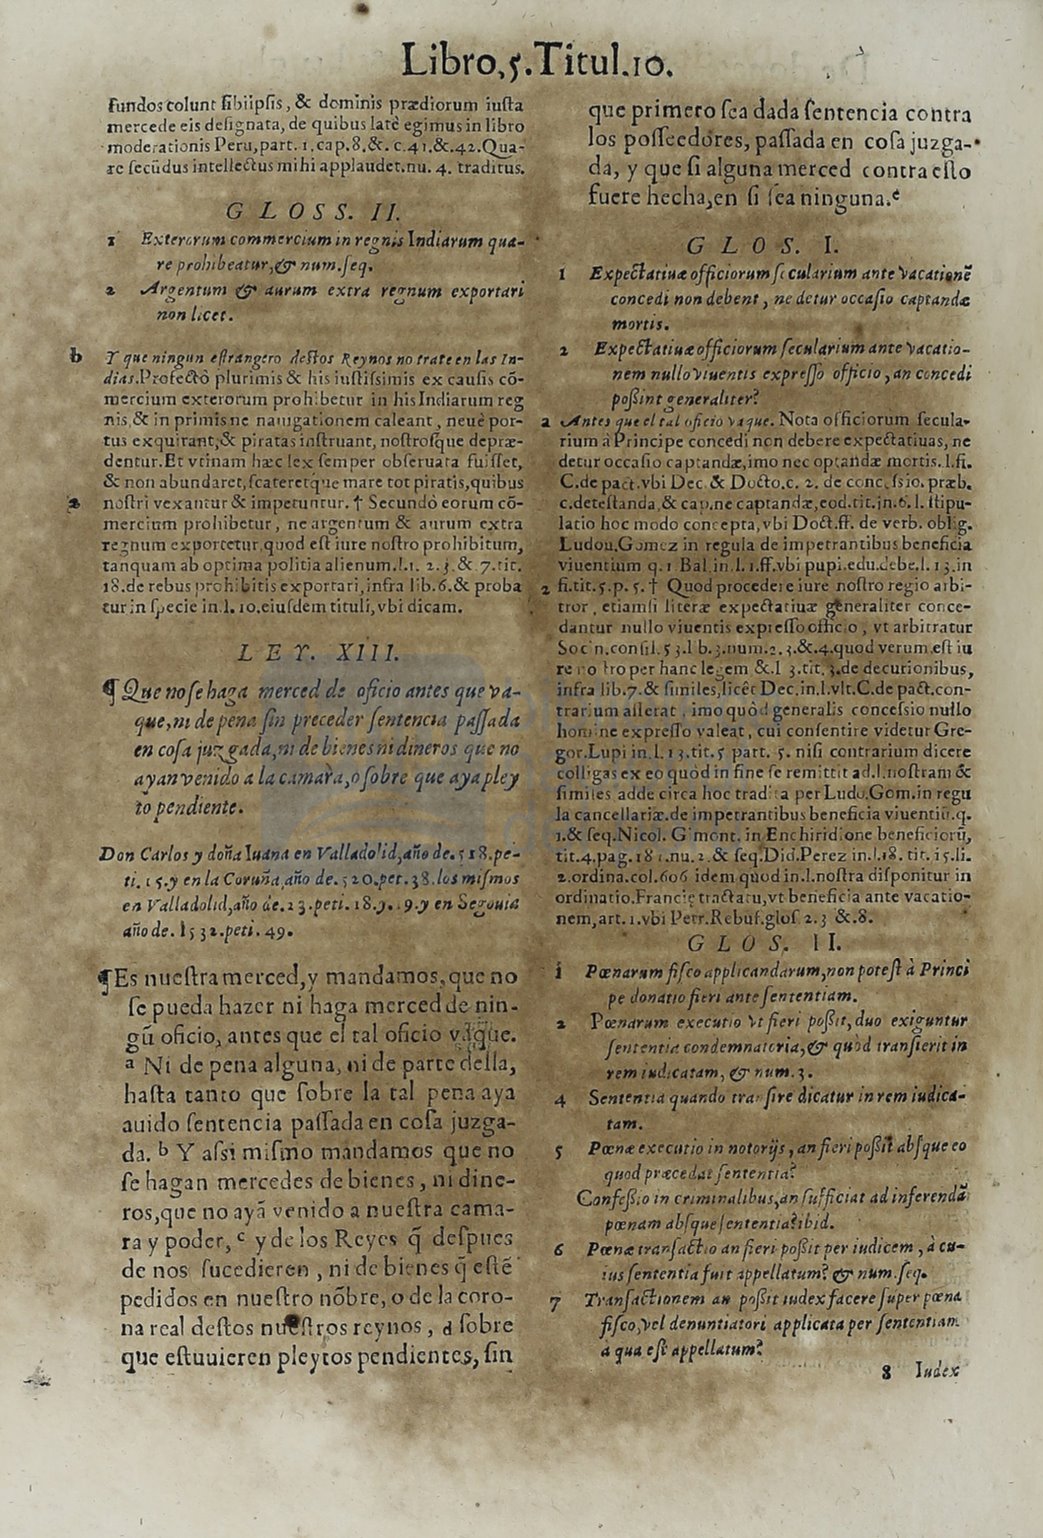 Libro,5.Titul.10.
fundos colunt sibiipsis, & dominis prædiorum iusta
mercede eis designata, de quibus latè egimus in libro
moderationis Peru, part. 1. cap. 8, &. c. 41. &. 42. Qua-
re secũdus intellectus mihi applaudet. nu. 4. traditus.
GLOSS. II.
1 Exterorum commercium in regnis Indiarum qua-
re prohibeatur, & num. seq.
2 Argentum & aurum extra regnum exportari
non licet.
b Y que ningun estrangero destos Reynos no trate en las In-
dias. Profectò plurimis & his iustissimis ex causis cõ-
mercium exterorum prohibetur in his Indiarum reg
nis, & in primis ne nauigationem caleant, neuè por-
tus exquirant, & piratas instruant, nostrosque depræ-
dentur. Et vtinam hæc lex semper obseruata fuisset,
& non abundaret, scateretque mare tot piratis, quibus
2 nostri vexantur & impetuntur. † Secundò eorum cõ-
mercium prohibetur, ne argentum & aurum extra
regnum exportetur, quod est iure nostro prohibitum,
tanquam ab optima politia alienum. l. 1. 2. 3. & 7. tit.
18. de rebus prohibitis exportari, infra lib. 6. & proba
tur in specie in. l. 10. eiusdem tituli, vbi dicam.
LEY. XIII.
¶ Que no se haga merced de oficio antes que va-
que, ni de pena sin preceder sentencia passada
en cosa juzgada, ni de bienes ni dineros que no
ayan venido a la camara, o sobre que aya pley
to pendiente.
Don Carlos y doña Iuana en Valladolid, año de. 518. pe-
ti. 15. y en la Coruña, año de. 520. pet. 38. los mismos
en Valladolid, año de. 23. peti. 18. y. .9. y en Segouia
año de. 1532. peti. 49.
¶ Es nuestra merced, y mandamos, que no
se pueda hazer ni haga merced de nin-
gũ oficio, antes que el tal oficio vaque.
a Ni de pena alguna, ni de parte della,
hasta tanto que sobre la tal pena aya
auido sentencia passada en cosa juzga-
da. b Y assi mismo mandamos que no
se hagan mercedes de bienes, ni dine-
ros, que no ayã venido a nuestra cama-
ra y poder, c y de los Reyes q̃ despues
de nos sucedieren, ni de bienes q̃ estẽ
pedidos en nuestro nõbre, o de la coro-
na real destos nuestros reynos, d sobre
que estuuieren pleytos pendientes, sin
que primero sea dada sentencia contra
los posseedores, passada en cosa juzga-
da, y que si alguna merced contra esto
fuere hecha, en si sea ninguna. e
GLOS. I.
1 Expectatiuæ officiorum secularium ante vacationẽ
concedi non debent, ne detur occasio captandæ
mortis.
2 Expectatiuæ officiorum secularium ante vacatio-
nem nullo viuentis expresso officio, an concedi
possint generaliter?
a Antes que el tal oficio vaque. Nota officiorum secula-
rium à Principe concedi non debere expectatiuas, ne
detur occasio captandæ, imo nec optandæ mortis. l. fi.
C. de pact. vbi Dec. & Docto. c. 2. de concessio. præb.
c. detestanda, & cap. ne captandæ, eod. tit. in. 6. l. stipu-
latio hoc modo concepta, vbi Doct. ff. de verb. oblig.
Ludou. Gomez in regula de impetrantibus beneficia
viuentium q. 1 Bal. in. l. 1. ff. vbi pupi. edu. debe. l. 13. in
2 fi. tit. 5. p. 5. † Quod procedere iure nostro regio arbi-
tror, etiamsi literæ expectatiuæ generaliter conce-
dantur nullo viuentis expresso officio, vt arbitratur
Socin. consil. 53. lib. 3. num. 2. 3. & 4. quod verum est iu
re nostro per hanc legem & l. 3. tit. 3. de decurionibus,
infra lib. 7. & similes, licèt Dec. in. l. vlt. C. de pact. con-
trarium asserat, imo quòd generalis concessio nullo
homine expresso valeat, cui consentire videtur Gre-
gor. Lupi in. l. 13. tit. 5 part. 5. nisi contrarium dicere
colligas ex eo quòd in fine se remittit ad. l. nostram &
similes adde circa hoc tradita per Ludo. Gom. in regu
la cancellariæ. de impetrantibus beneficia viuentiũ. q.
1. & seq. Nicol. Gimont. in Enchiridione beneficiorũ,
tit. 4. pag. 181. nu. 2. & seq. Did. Perez in. l. 18. tit. 15. li.
2. ordina. col. 606 idem quòd in. l. nostra disponitur in
ordinatio. Francię tractatu, vt beneficia ante vacatio-
nem, art. 1. vbi Petr. Rebuf. glos 2. 3 &. 8.
GLOS. II.
1 Pœnarum fisco applicandarum, non potest à Princi
pe donatio fieri ante sententiam.
2 Pœnarum executio vt fieri possit, duo exiguntur
sententia condemnatoria, & quòd transierit in
rem iudicatam, & num. 3.
4 Sententia quando transire dicatur in rem iudica-
tam.
5 Pœnæ executio in notorijs, an fieri possit absque eo
quod præcedat sententia?
Confessio in criminalibus, an sufficiat ad inferendã
pœnam absque sententia? ibid.
6 Pœnæ transactio an fieri possit per iudicem, à cu-
ius sententia fuit appellatum? & num. seq.
7 Transactionem an possit iudex facere super pœna
fisco, vel denuntiatori applicata per sententiam
à qua est appellatum?
8 Iudex